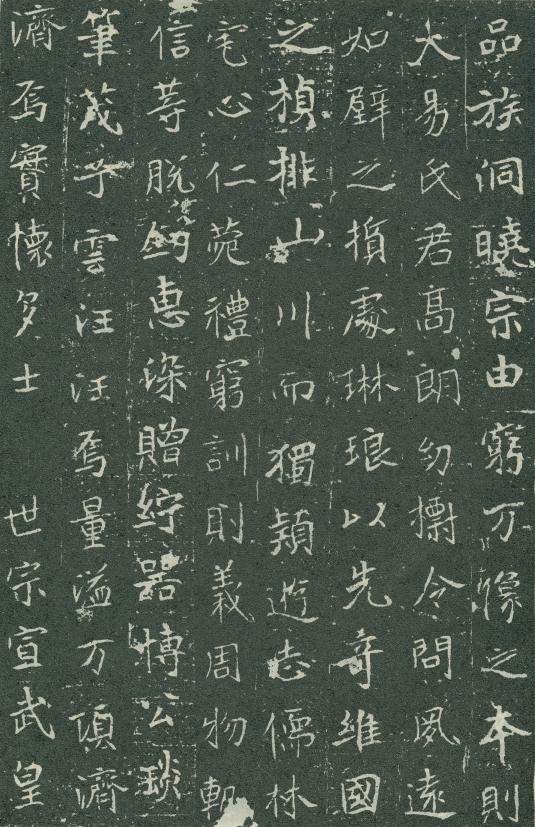 品族洞曉宗由窮万像之本則
大易氏君高朗幼擅令問夙遠
如璧之損處琳琅以先奇維國
之楨排山川而獨穎遊志儒林
宅心仁菀禮窮訓則義周物軌
信等脫劍惠深贈紵器博公琰
筆茂子雲汪汪焉量溢万頃濟
濟焉實懷多士 世宗宣武皇